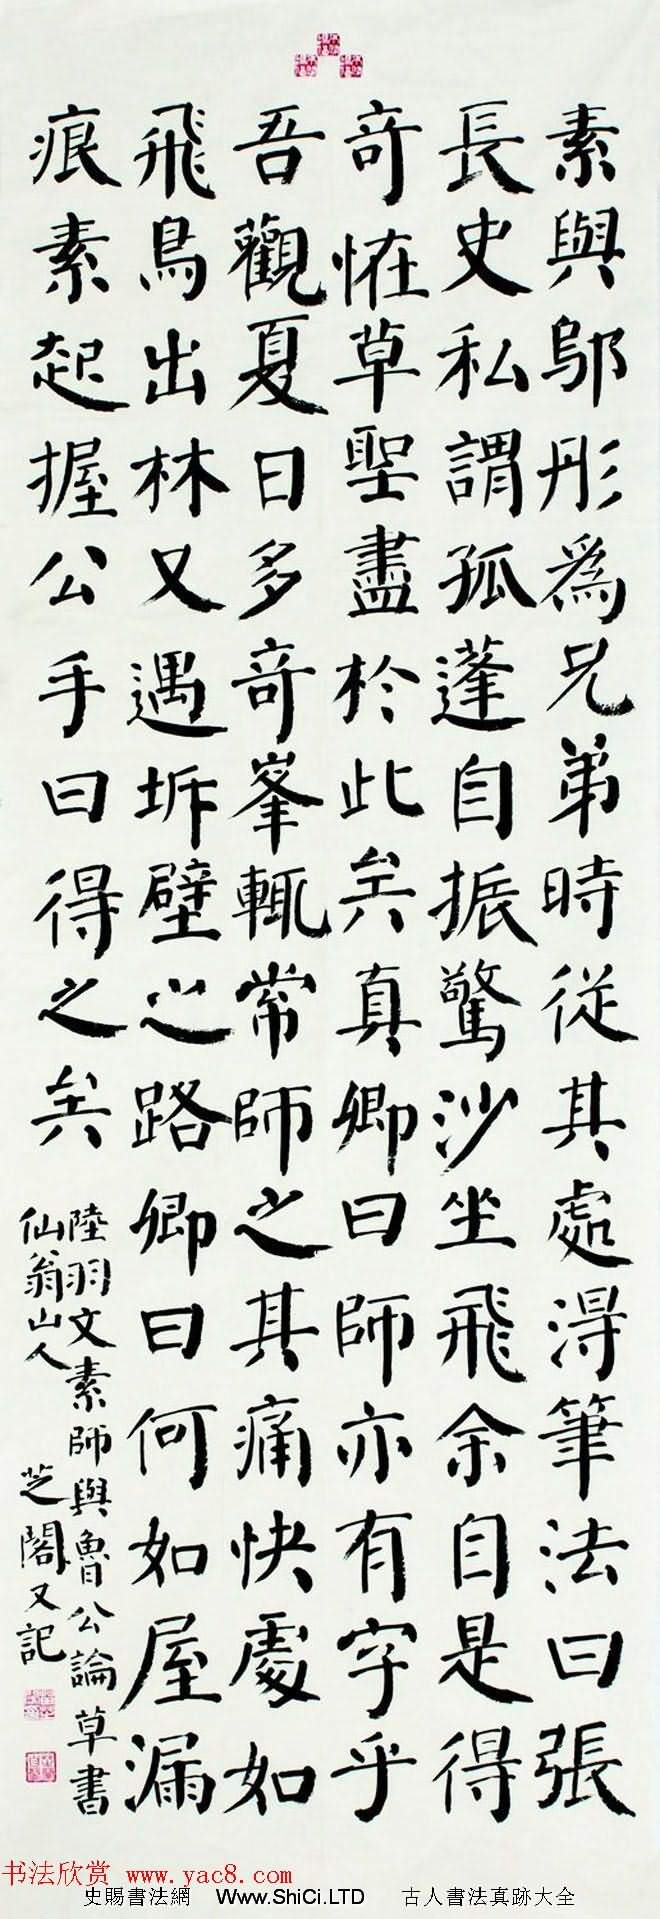 素與鄔彤爲兄弟時從其處淂筆法曰張
長史私謂孤蓬自振驚沙坐飛余自是得
奇恠草聖盡於此矣真卿曰師亦有字乎
吾觀夏日多奇峯輒常師之其痛快處如
飛鳥出林又遇坼壁之路卿曰何如屋漏
痕素起握公手曰得之矣
陸羽文素師與魯公論草書
仙翁山人 芝閣又記
书法欣赏 www.yac8.com
史賜書法網 Www.ShiCi.LTD 古人書法真跡大全